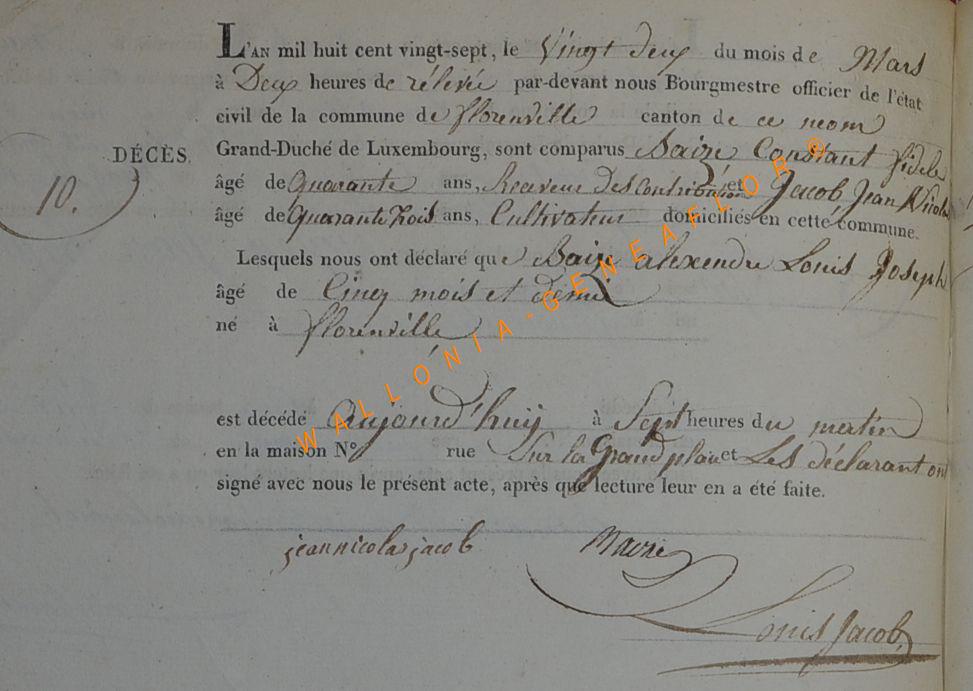 L'AN mil huit cent vingt-sept, le Vingt deux du mois de Mars
à Deux heures de rélevée par-devant nous Bourgmestre officier de l'état
civil de la commune de florenville canton de ce neom
DÉCÈS.
10.
Grand-Duché de Luxembourg, sont comparus Constant fidele
âgé de quarante ans, Receveur des Contribution et Jacob Jean Nicolas
âgé de quarante trois ans, Cultivateur domiciliés en cette commune.
Lesquels nous ont déclaré que alexendre Louis Joseph
âgé de Cinq mois et demi
né à florenville
est décédé aujourd'huy à Sept heures du mertin
en la maison N° rue Sur la Grand place et Les déclarant ont
signé avec nous le présent acte, après que lecture leur en a été faite.
jeannicolas jacob
Louis Jacob
WALLONIA-GENEAFLOR ©